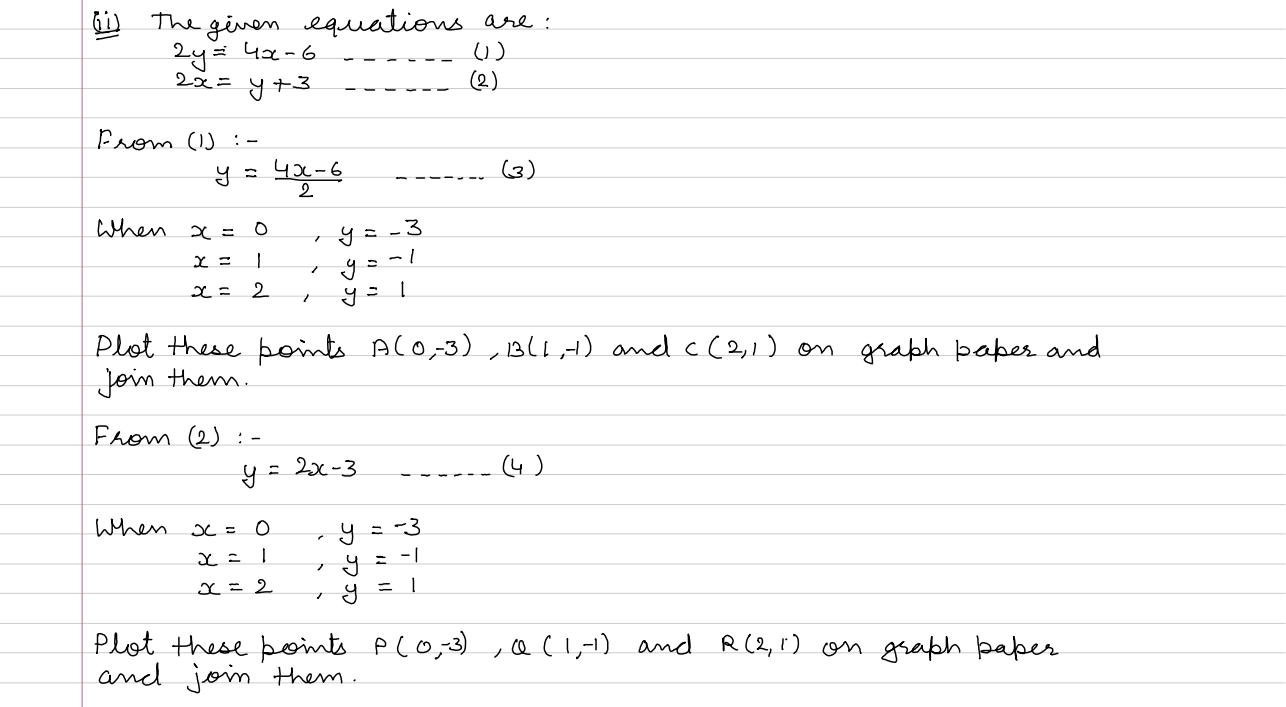 (ii) The given equations are :
2y = 4x - 6 ------ (1)
2x = y + 3 ------ (2)
From (1) :-
y = (4x-6)/2 ------- (3)
When x = 0 , y = -3
x = 1 , y = -1
x = 2 , y = 1
Plot these points A(0,-3) , B(1,-1) and C(2,1) on graph paper and
join them.
From (2) :-
y = 2x-3 ------ (4)
When x = 0 , y = -3
x = 1 , y = -1
x = 2 , y = 1
Plot these points P(0,-3) , Q(1,-1) and R(2,1) on graph paper
and join them.